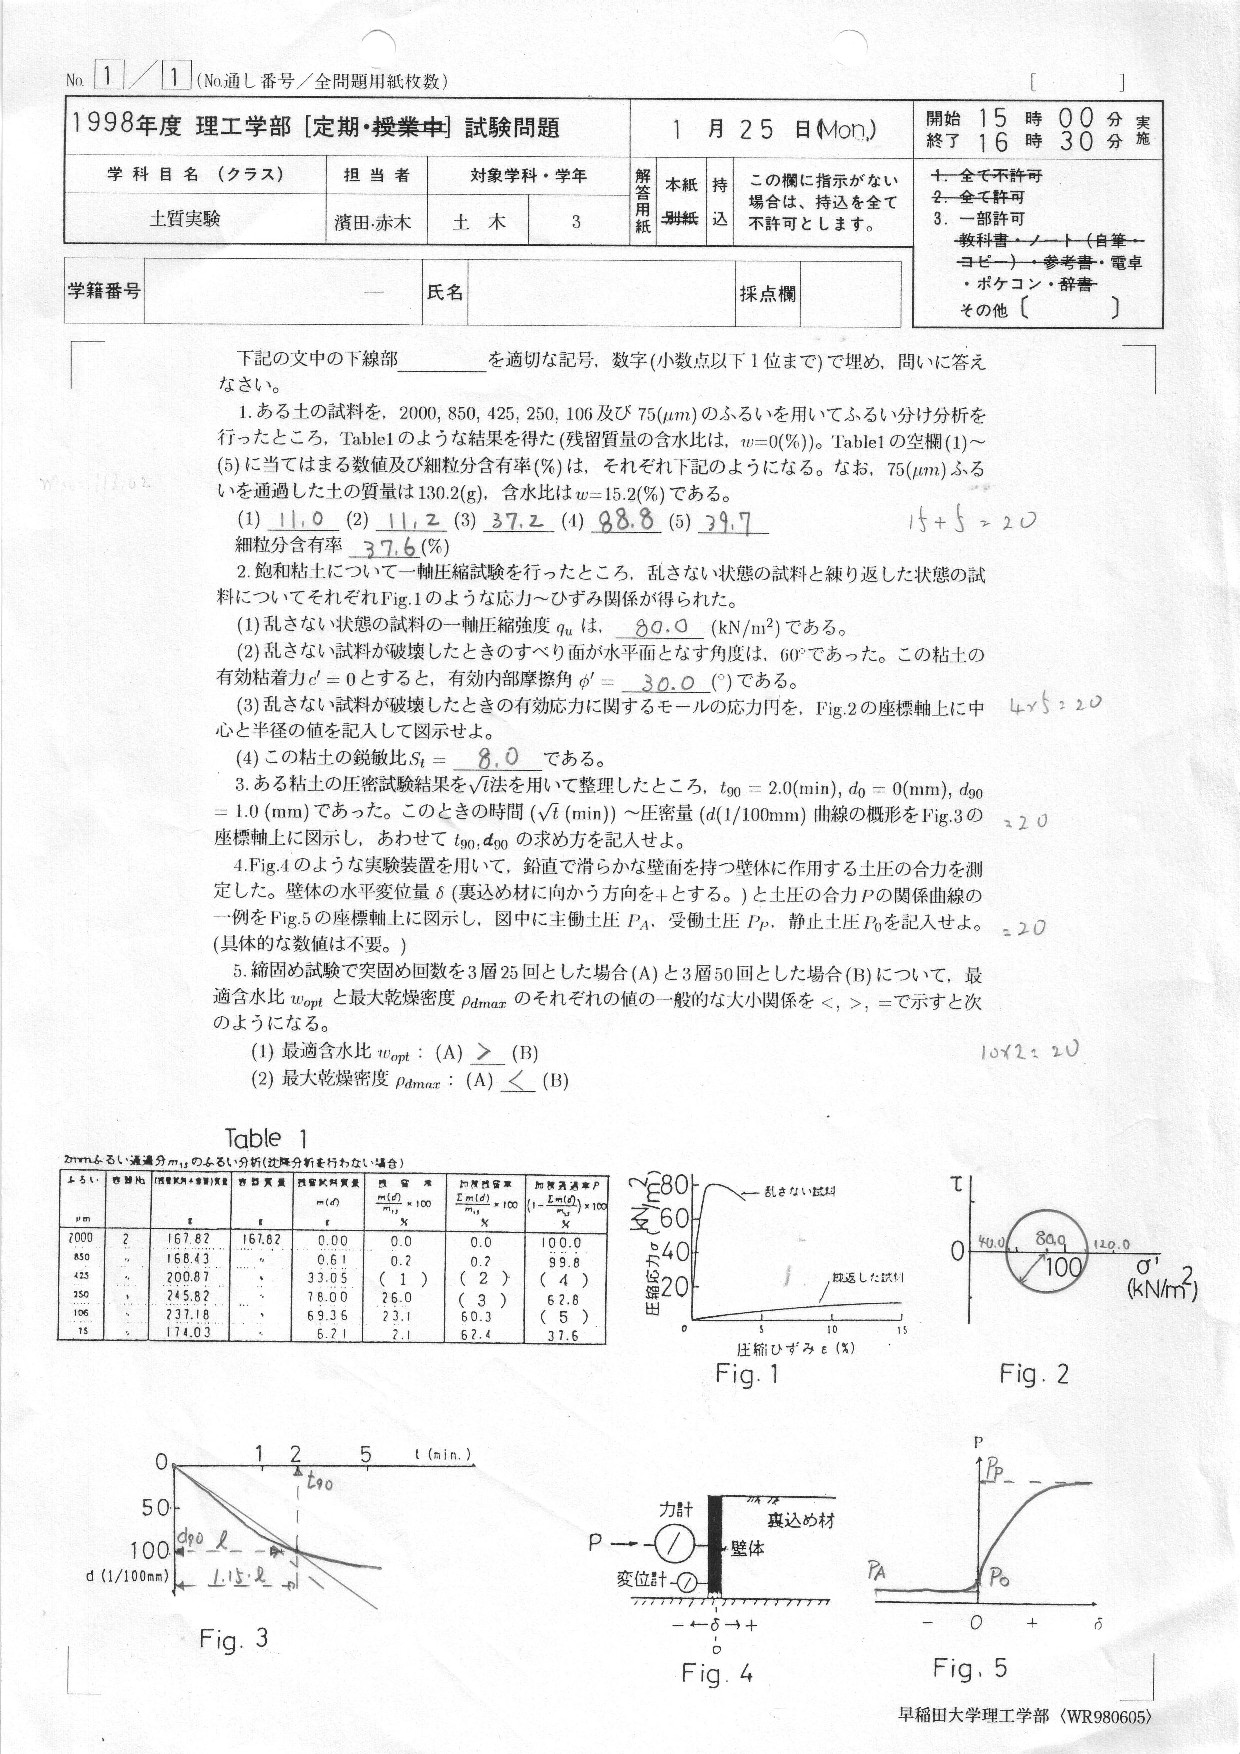 No. 1 / 1 (No.通し番号／全問題用紙枚数) [ ]
1998年度 理工学部 [定期・授業中] 試験問題
1 月 25 日(Mon,)
開始 15 時 00 分 実施
終了 16 時 30 分
学科目名 (クラス) 担当者 対象学科・学年
土質実験 濱田・赤木 土 木 3
解答用紙 本紙 別紙 持込
この欄に指示がない
場合は、持込を全て
不許可とします。
1. 全て不許可
2. 全て許可
3. 一部許可
教科書・ノート（自筆・
コピー）・参考書・電卓
・ポケコン・辞書
その他〔 〕
学籍番号 — 氏名 採点欄
下記の文中の下線部________を適切な記号，数字(小数点以下1位まで)で埋め，問いに答え
なさい。
1.ある土の試料を，2000, 850, 425, 250, 106及び75(μm)のふるいを用いてふるい分け分析を
行ったところ，Table1のような結果を得た(残留質量の含水比は，w=0(%))。Table1の空欄(1)～
(5)に当てはまる数値及び細粒分含有率(%)は，それぞれ下記のようになる。なお，75(μm)ふる
いを通過した土の質量は130.2(g)，含水比はw=15.2(%)である。
(1) 11.0 (2) 11.2 (3) 37.2 (4) 88.8 (5) 39.7
15+5=20
細粒分含有率 37.6 (%)
2.飽和粘土について一軸圧縮試験を行ったところ，乱さない状態の試料と練り返した状態の試
料についてそれぞれFig.1のような応力～ひずみ関係が得られた。
(1)乱さない状態の試料の一軸圧縮強度 qu は， 80.0 (kN/m²)である。
(2)乱さない試料が破壊したときのすべり面が水平面となす角度は，60°であった。この粘土の
有効粘着力c′ = 0とすると，有効内部摩擦角 φ′ = 30.0 (°)である。
(3)乱さない試料が破壊したときの有効応力に関するモールの応力円を，Fig.2の座標軸上に中
心と半径の値を記入して図示せよ。
4×5=20
(4)この粘土の鋭敏比St = 8.0 である。
3.ある粘土の圧密試験結果を√t法を用いて整理したところ，t90 = 2.0(min), d0 = 0(mm), d90
= 1.0 (mm)であった。このときの時間 (√t (min)) ～圧密量 (d(1/100mm) 曲線の概形をFig.3の
座標軸上に図示し，あわせて t90, d90 の求め方を記入せよ。
=20
4.Fig.4のような実験装置を用いて，鉛直で滑らかな壁面を持つ壁体に作用する土圧の合力を測
定した。壁体の水平変位量 δ (裏込め材に向かう方向を+とする。)と土圧の合力Pの関係曲線の
一例をFig.5の座標軸上に図示し，図中に主働土圧 PA，受働土圧 PP，静止土圧P0を記入せよ。
=20
(具体的な数値は不要。)
5.締固め試験で突固め回数を3層25回とした場合(A)と3層50回とした場合(B)について，最
適含水比 wopt と最大乾燥密度 ρdmax のそれぞれの値の一般的な大小関係を <, >, =で示すと次
のようになる。
(1) 最適含水比 wopt : (A) > (B)
10×2=20
(2) 最大乾燥密度 ρdmax : (A) < (B)
Table 1
2mmふるい通過分m1Sのふるい分析(沈降分析を行わない場合)
ふるい 容器No. (残留試料+容器)質量 容器質量 残留試料質量 残留率 加積残留率 加積通過率P
m(d) m(d)/m1S ×100 Σm(d)/m1S ×100 (1−Σm(d)/m1S)×100
μm g g g % % %
2000 2 167.82 167.82 0.00 0.0 0.0 100.0
850 〃 168.43 〃 0.61 0.2 0.2 99.8
425 〃 200.87 〃 33.05 ( 1 ) ( 2 ) ( 4 )
250 〃 245.82 〃 78.00 26.0 ( 3 ) 62.8
106 〃 237.18 〃 69.36 23.1 60.3 ( 5 )
75 〃 174.03 〃 6.21 2.1 62.4 37.6
圧縮応力σ(kN/m²)
80
60
40
20
0 5 10 15
乱さない試料
練返した試料
圧縮ひずみ ε (%)
Fig. 1
τ
0
40.0 80.0 120.0
100
σ'
(kN/m²)
Fig. 2
0 1 2 5 t (min.)
t90
50
d90 l
100
d (1/100mm)
1.15・l
Fig. 3
力計
P
変位計
壁体
裏込め材
− ← δ → +
0
Fig. 4
P
PP
PA
P0
− 0 + δ
Fig. 5
早稲田大学理工学部〈WR980605〉